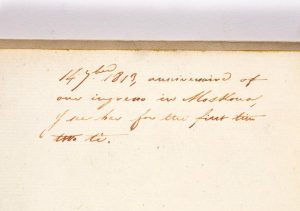 14 7bre 1813, anniversaire of
our ingress in Moskowa,
I see her for the first tim